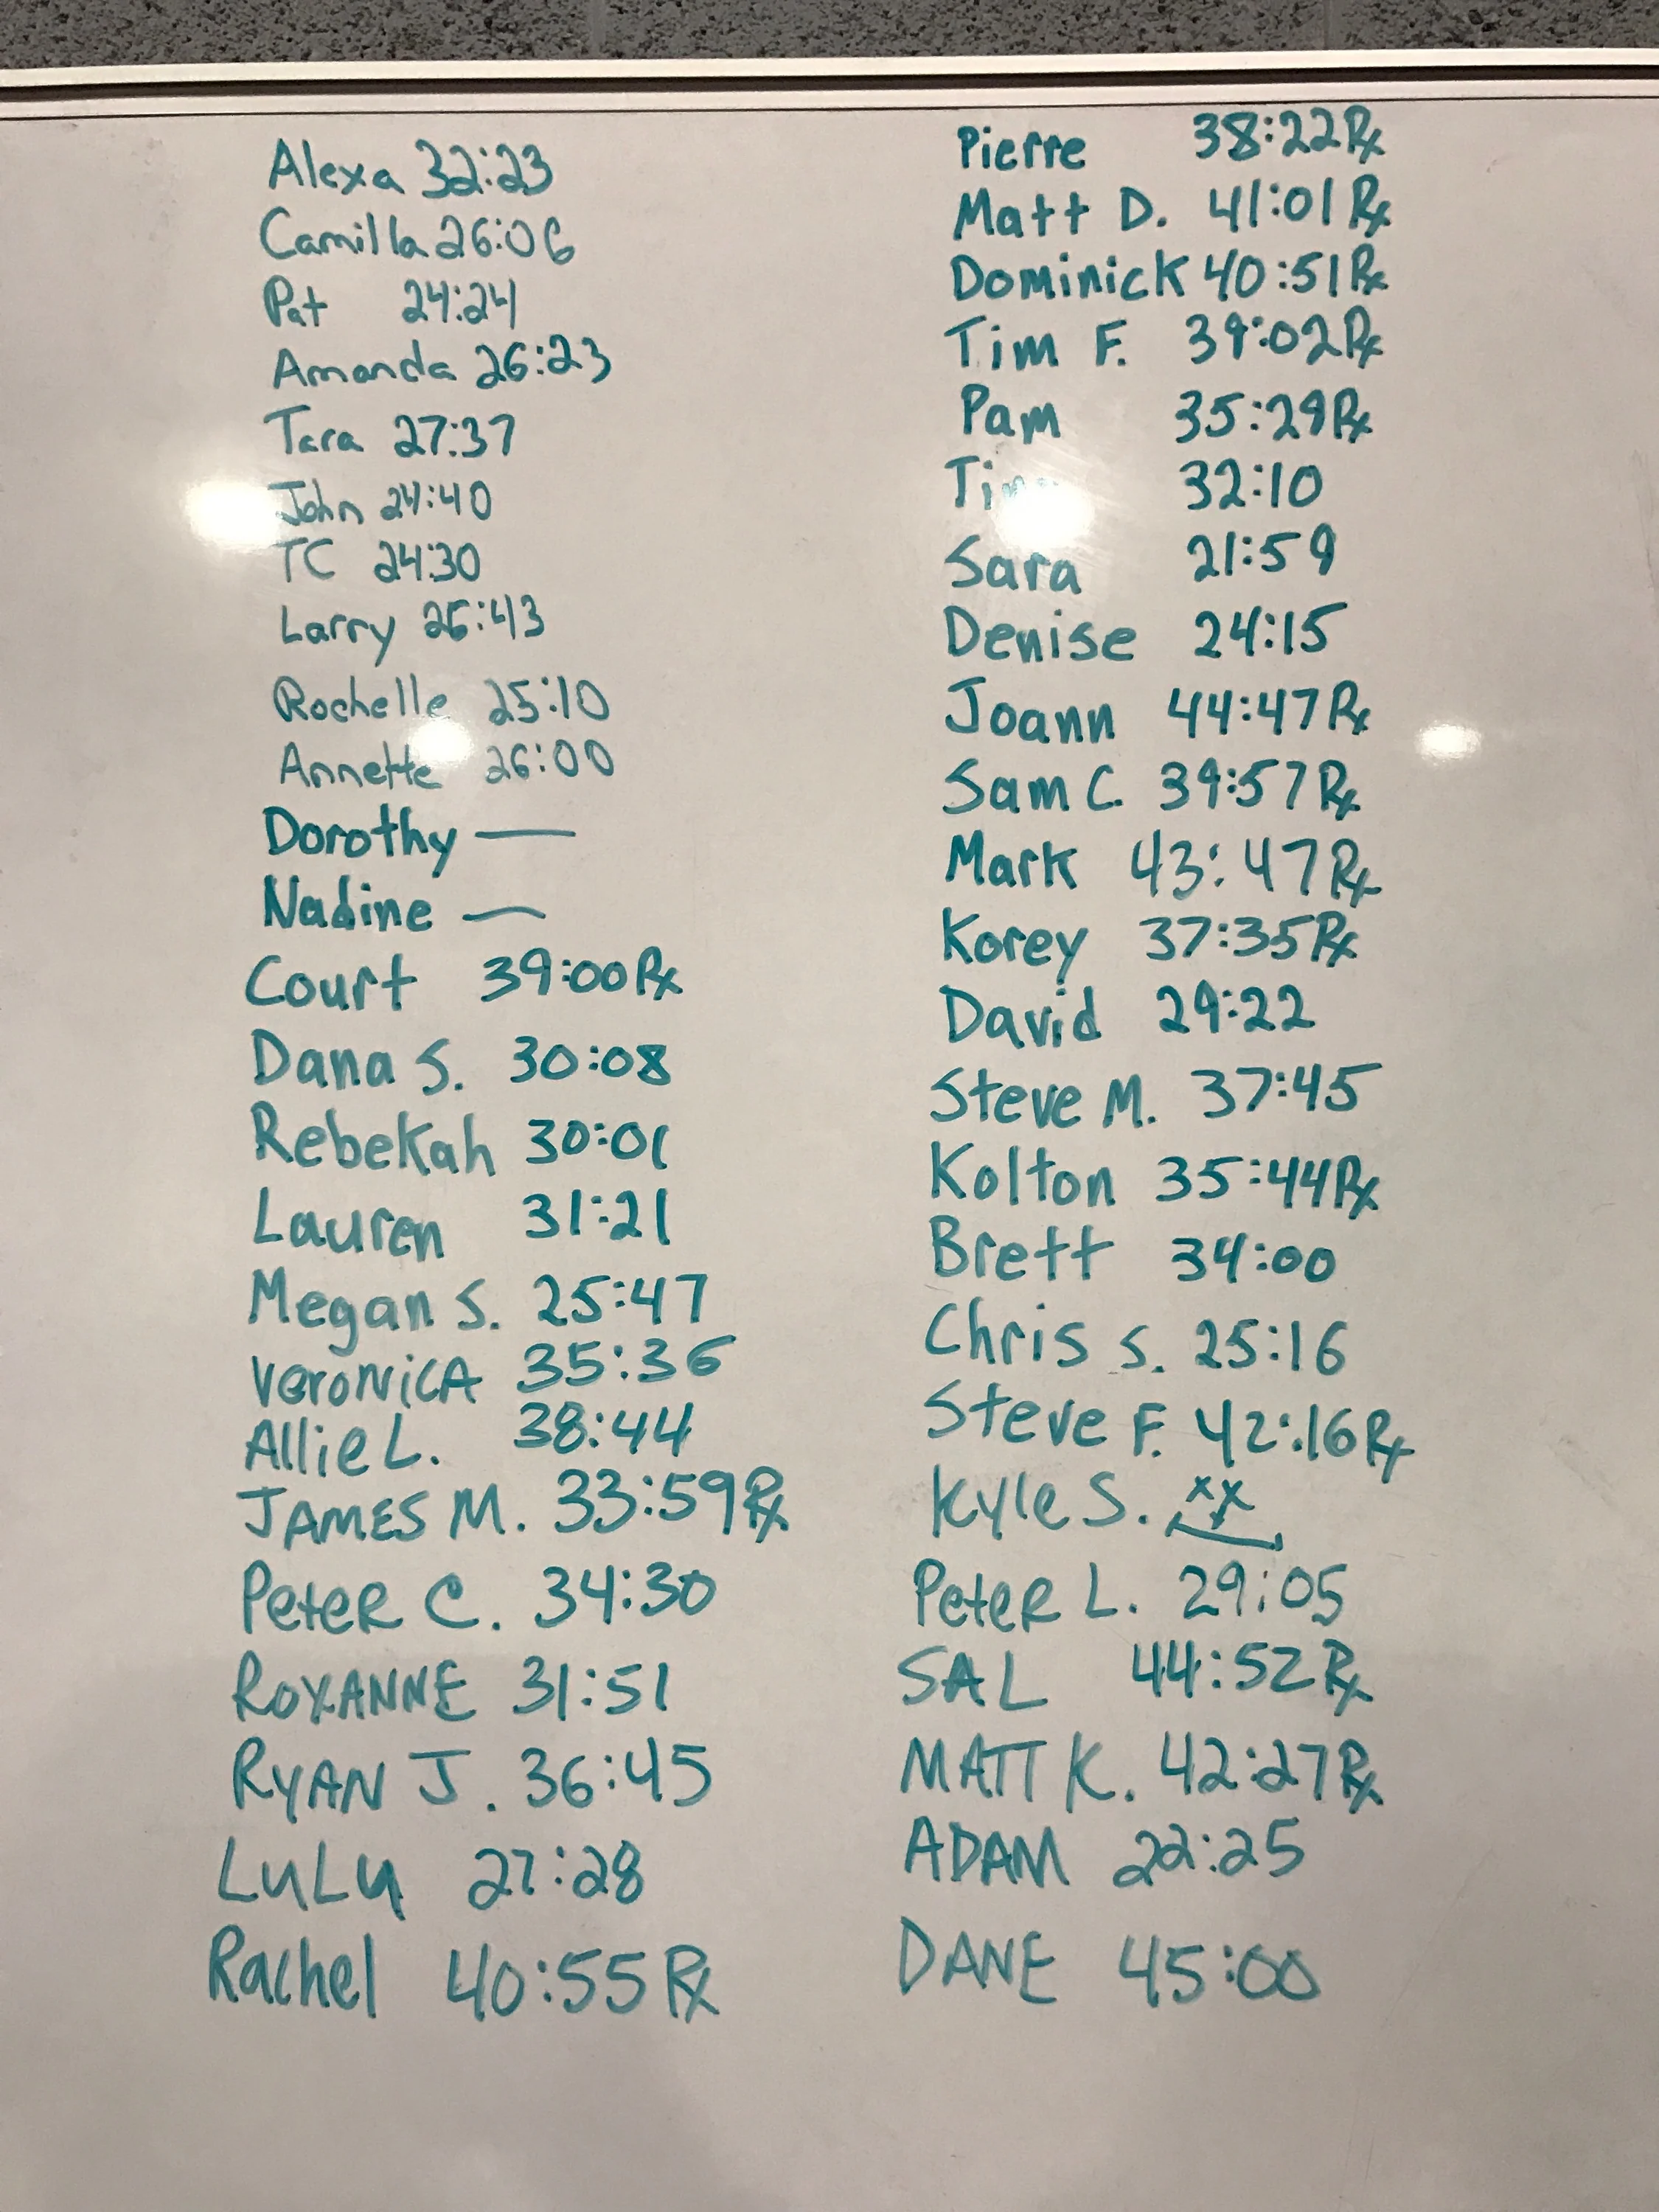 Alexa 32:23
Camilla 26:06
Pat 24:24
Amanda 26:23
Tara 27:37
John 24:40
TC 24:30
Larry 25:43
Rochelle 25:10
Annette 26:00
Dorothy —
Nadine —
Court 39:00 Rx
Dana S. 30:08
Rebekah 30:01
Lauren 31:21
Megan S. 25:47
VeroNicA 35:36
Allie L. 38:44
JAMES M. 33:59 Rx
PeteR C. 34:30
ROXANNE 31:51
RYAN J. 36:45
LuLu 27:28
Rachel 40:55 Rx
Pierre 38:22 Rx
Matt D. 41:01 Rx
Dominick 40:51 Rx
Tim F. 39:02 Rx
Pam 35:29 Rx
32:10
Sara 21:59
Denise 24:15
Joann 44:47 Rx
Sam C. 39:57 Rx
Mark 43:47 Rx
Korey 37:35 Rx
David 29:22
Steve M. 37:45
Kolton 35:44 Rx
Brett 34:00
Chris S. 25:16
Steve F. 42:16 Rx
Kyle S. xx
PeteR L. 29:05
SAL 44:52 Rx
MATT K. 42:27 Rx
ADAM 22:25
DANE 45:00